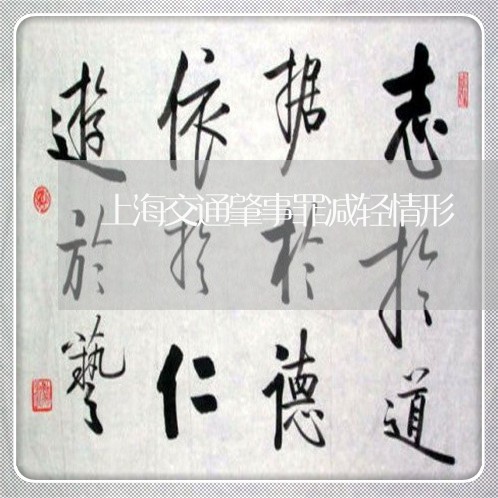 志於道
据於德
依於仁
遊於藝
上海交通肇事罪减轻情形